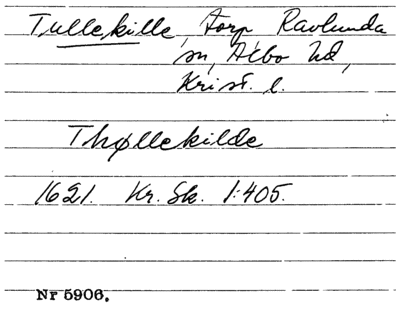 Tullekille, torp Ravlunda
sn, Albo hd,
Krist. l.
Thøllekilde
1621. Kr. Sk. 1:405.
Nr 5906.